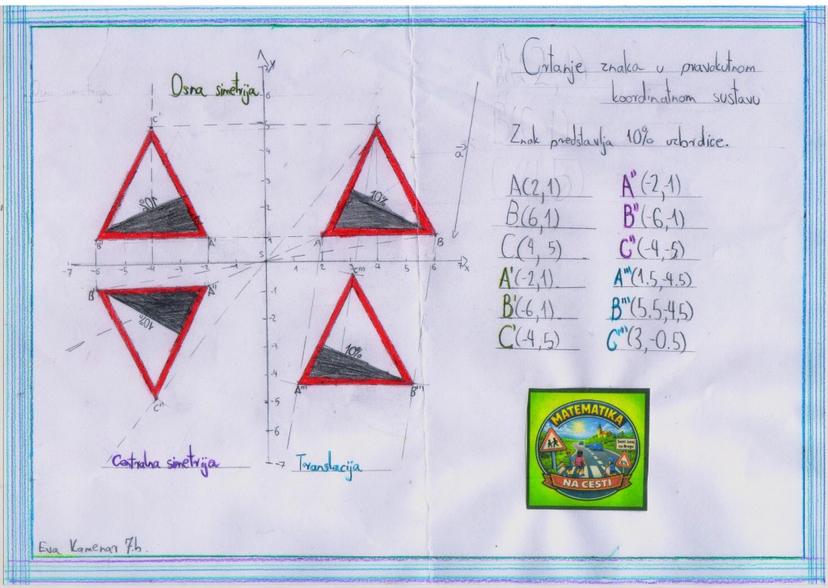 Crtanje znaka u pravokutnom
koordinatnom sustavu
Znak predstavlja 10% uzbrdice.
Osna simetrija
y
6
5
4
3
2
1
-7 -6 -5 -4 -3 -2 -1 0 1 2 3 4 5 6 7 x
-1
-2
-3
-4
-5
-6
-7
C'
10%
B' A'
C
10%
A B
a
B'' A''
10%
C''
C'''
10%
A''' B'''
Centralna simetrija
Translacija
A(2,1)
B(6,1)
C(4,5)
A'(-2,1)
B'(-6,1)
C'(-4,5)
A''(-2,-1)
B''(-6,-1)
C''(-4,-5)
A'''(1.5,-4.5)
B'''(5.5,-4.5)
C'''(3,-0.5)
MATEMATIKA
NA CESTI
Eva Kamenar 7.b.